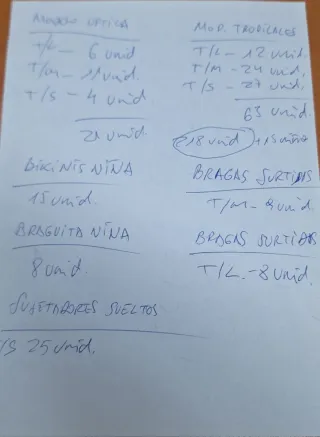 MODELO OPTICA
T/L - 6 unid
T/M - 11 unid.
T/S - 4 unid
21 unid.
BIKINIS NIÑA
15 unid.
BRAGUITA NIÑA
8 unid.
SUJETADORES SUELTOS
T/S 25 unid.
MOD. TROPICALES
T/L - 12 unid.
T/M - 24 unid.
T/S - 27 unid.
63 unid.
218 unid + 15 niña
BRAGAS SURTIDAS
T/M - 8 unid.
BRAGAS SURTIDAS
T/L. - 8 unid.